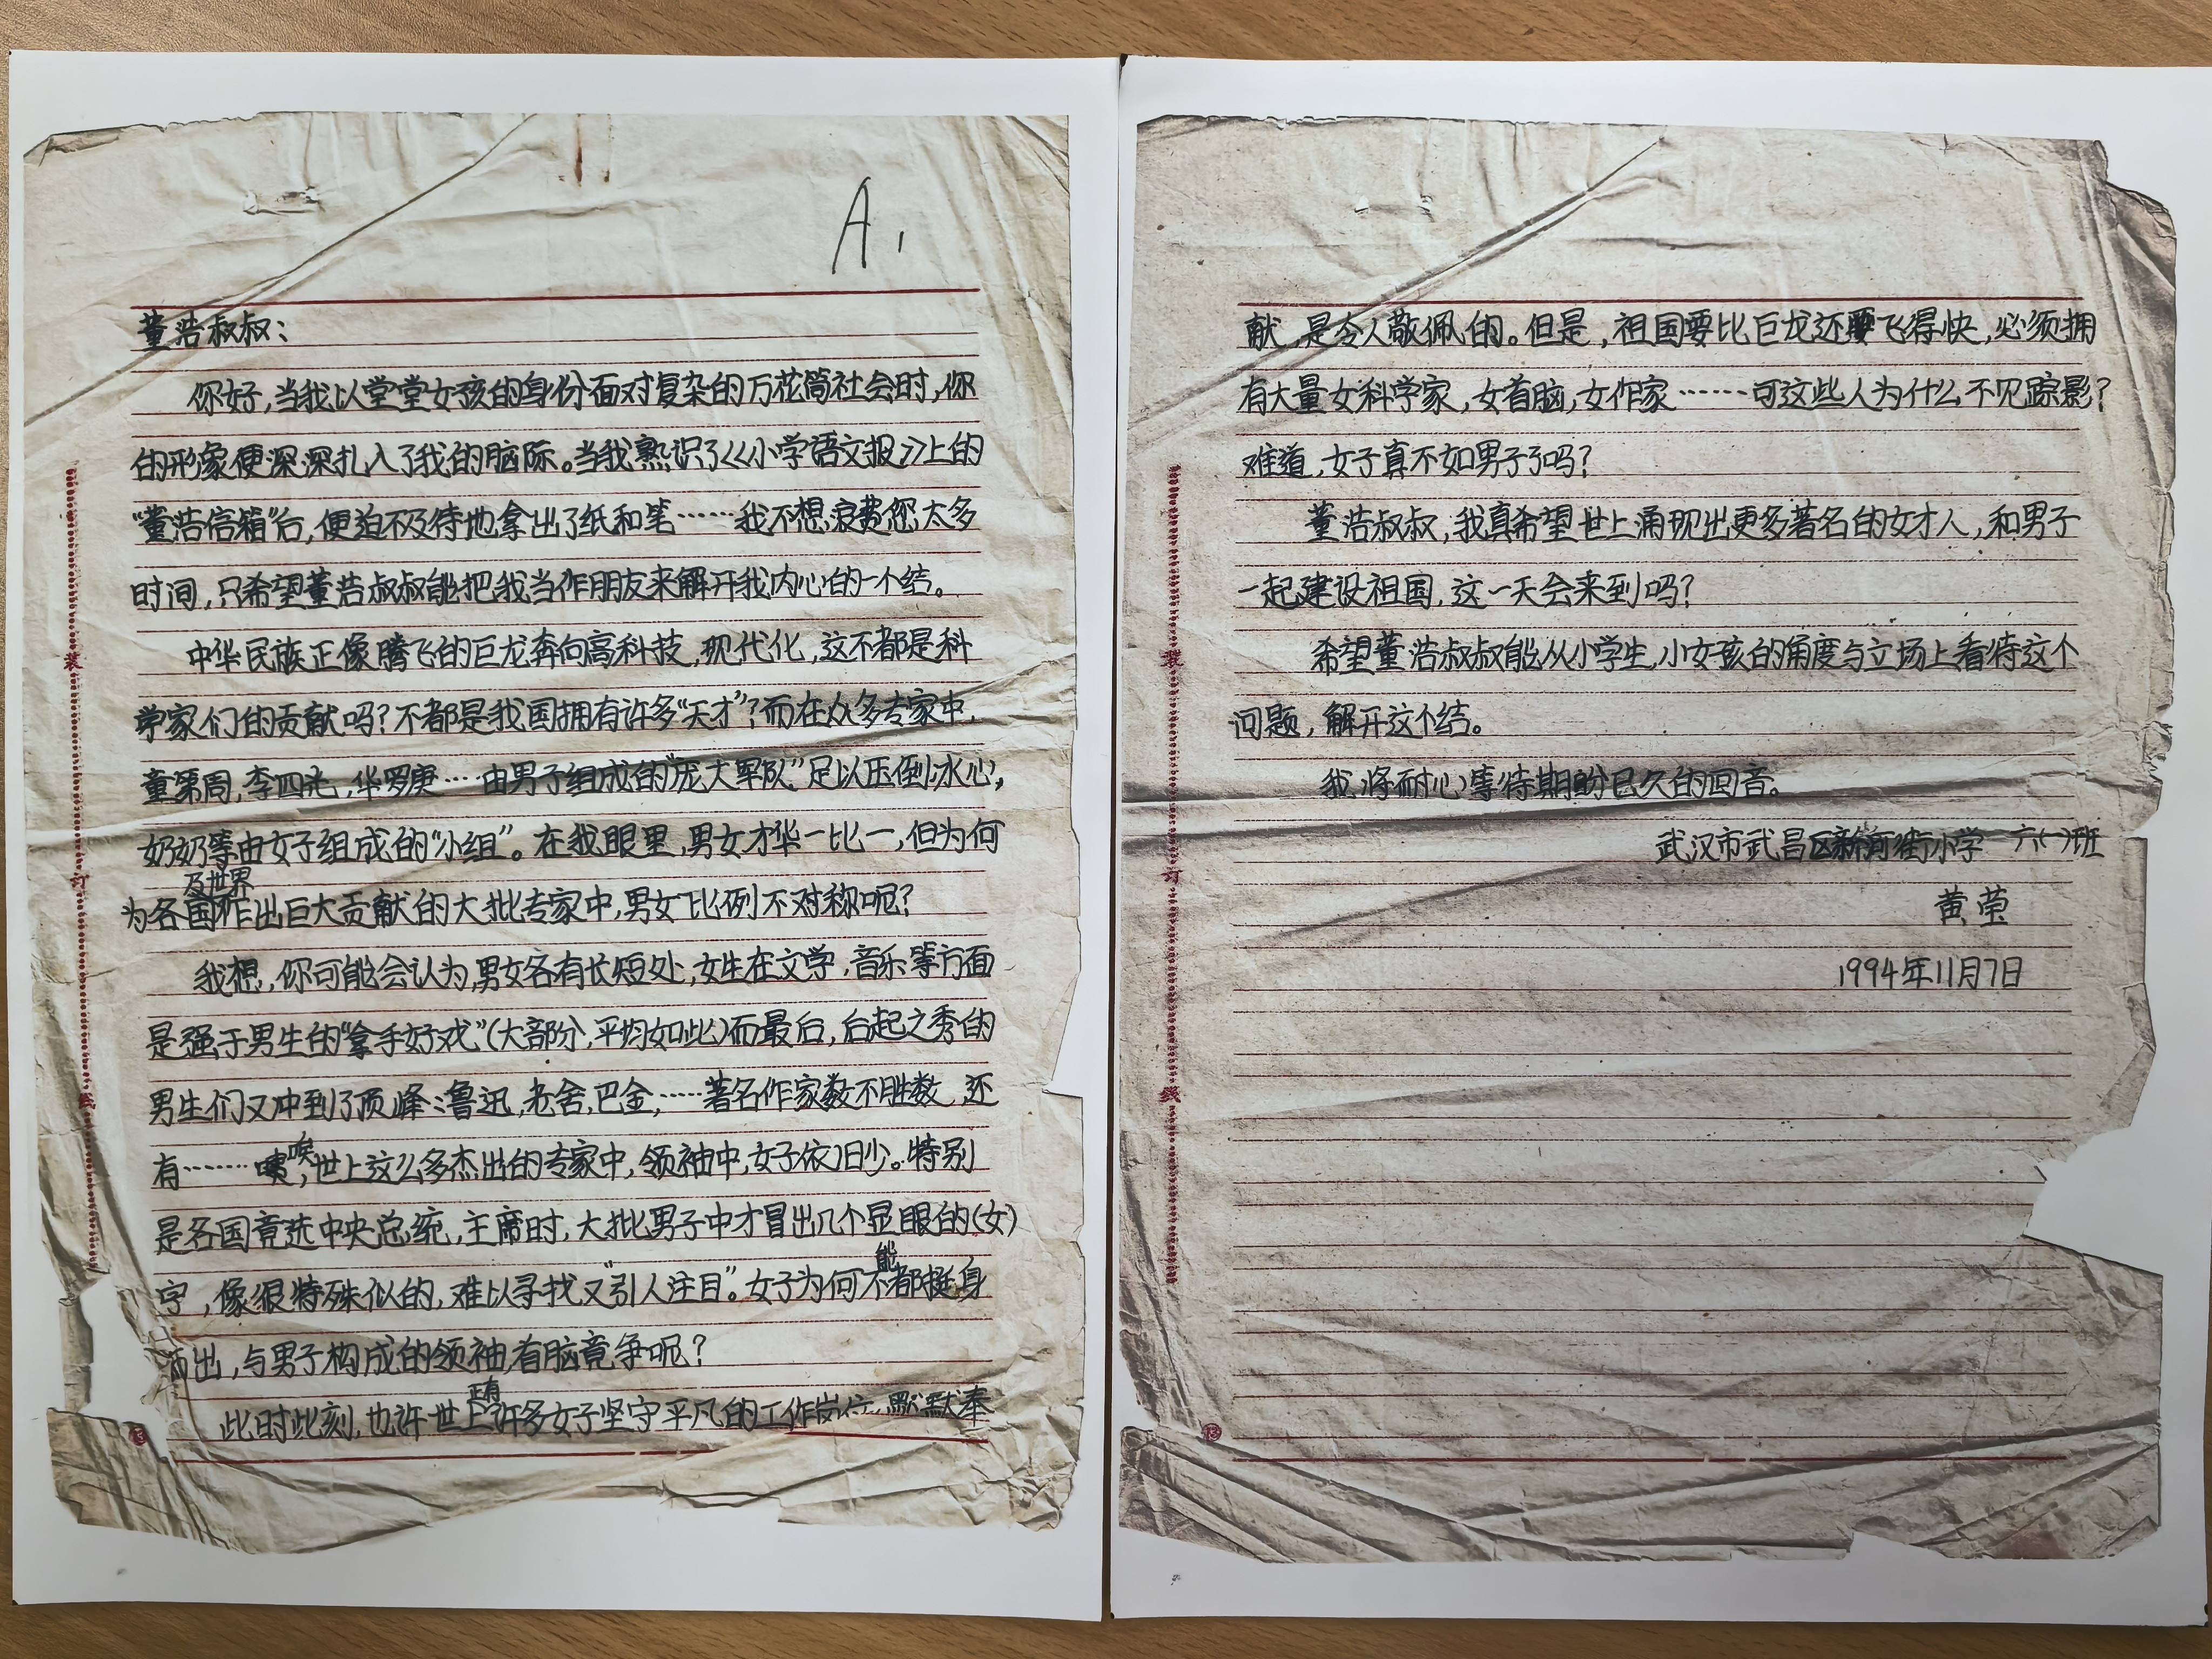 A1
董浩叔叔：
你好，当我以堂堂女孩的身份面对复杂的万花筒社会时，你
的形象便深深扎入了我的脑际。当我熟识了《小学语文报》上的
“董浩信箱”后，便迫不及待地拿出了纸和笔……我不想浪费您太多
时间，只希望董浩叔叔能把我当作朋友来解开我内心的一个结。
中华民族正像腾飞的巨龙奔向高科技，现代化，这不都是科
学家们的贡献吗？不都是我国拥有许多“天才”？而在众多专家中，
童第周，李四光，华罗庚…由男子组成的“庞大军队”足以压倒冰心，
奶奶等由女子组成的“小组”。在我眼里，男女才华一比一，但为何
为各国及世界作出巨大贡献的大批专家中，男女比例不对称呢？
我想，你可能会认为，男女各有长短处，女生在文学，音乐等方面
是强于男生的“拿手好戏”（大部分，平均如此）而最后，后起之秀的
男生们又冲到了顶峰：鲁迅，老舍，巴金，……著名作家数不胜数，还
有……唉，世上这么多杰出的专家中，领袖中，女子依旧少。特别
是各国竞选中央总统，主席时，大批男子中才冒出几个显眼的（女）
字，像很特殊似的，难以寻找又“引人注目”。女子为何不能都挺身
而出，与男子构成的领袖，首脑竞争呢？
此时此刻，也许世上正有许多女子坚守平凡的工作岗位，默默奉
装
订
线
13
献，是令人敬佩的。但是，祖国要比巨龙还要飞得快，必须拥
有大量女科学家，女首脑，女作家……可这些人为什么不见踪影？
难道，女子真不如男子了吗？
董浩叔叔，我真希望世上涌现出更多著名的女才人，和男子
一起建设祖国，这一天会来到吗？
希望董浩叔叔能从小学生，小女孩的角度与立场上看待这个
问题，解开这个结。
我将耐心等待期盼已久的回音。
武汉市武昌区新河街小学 六（一）班
黄莹
1994年11月7日
装
订
线
13